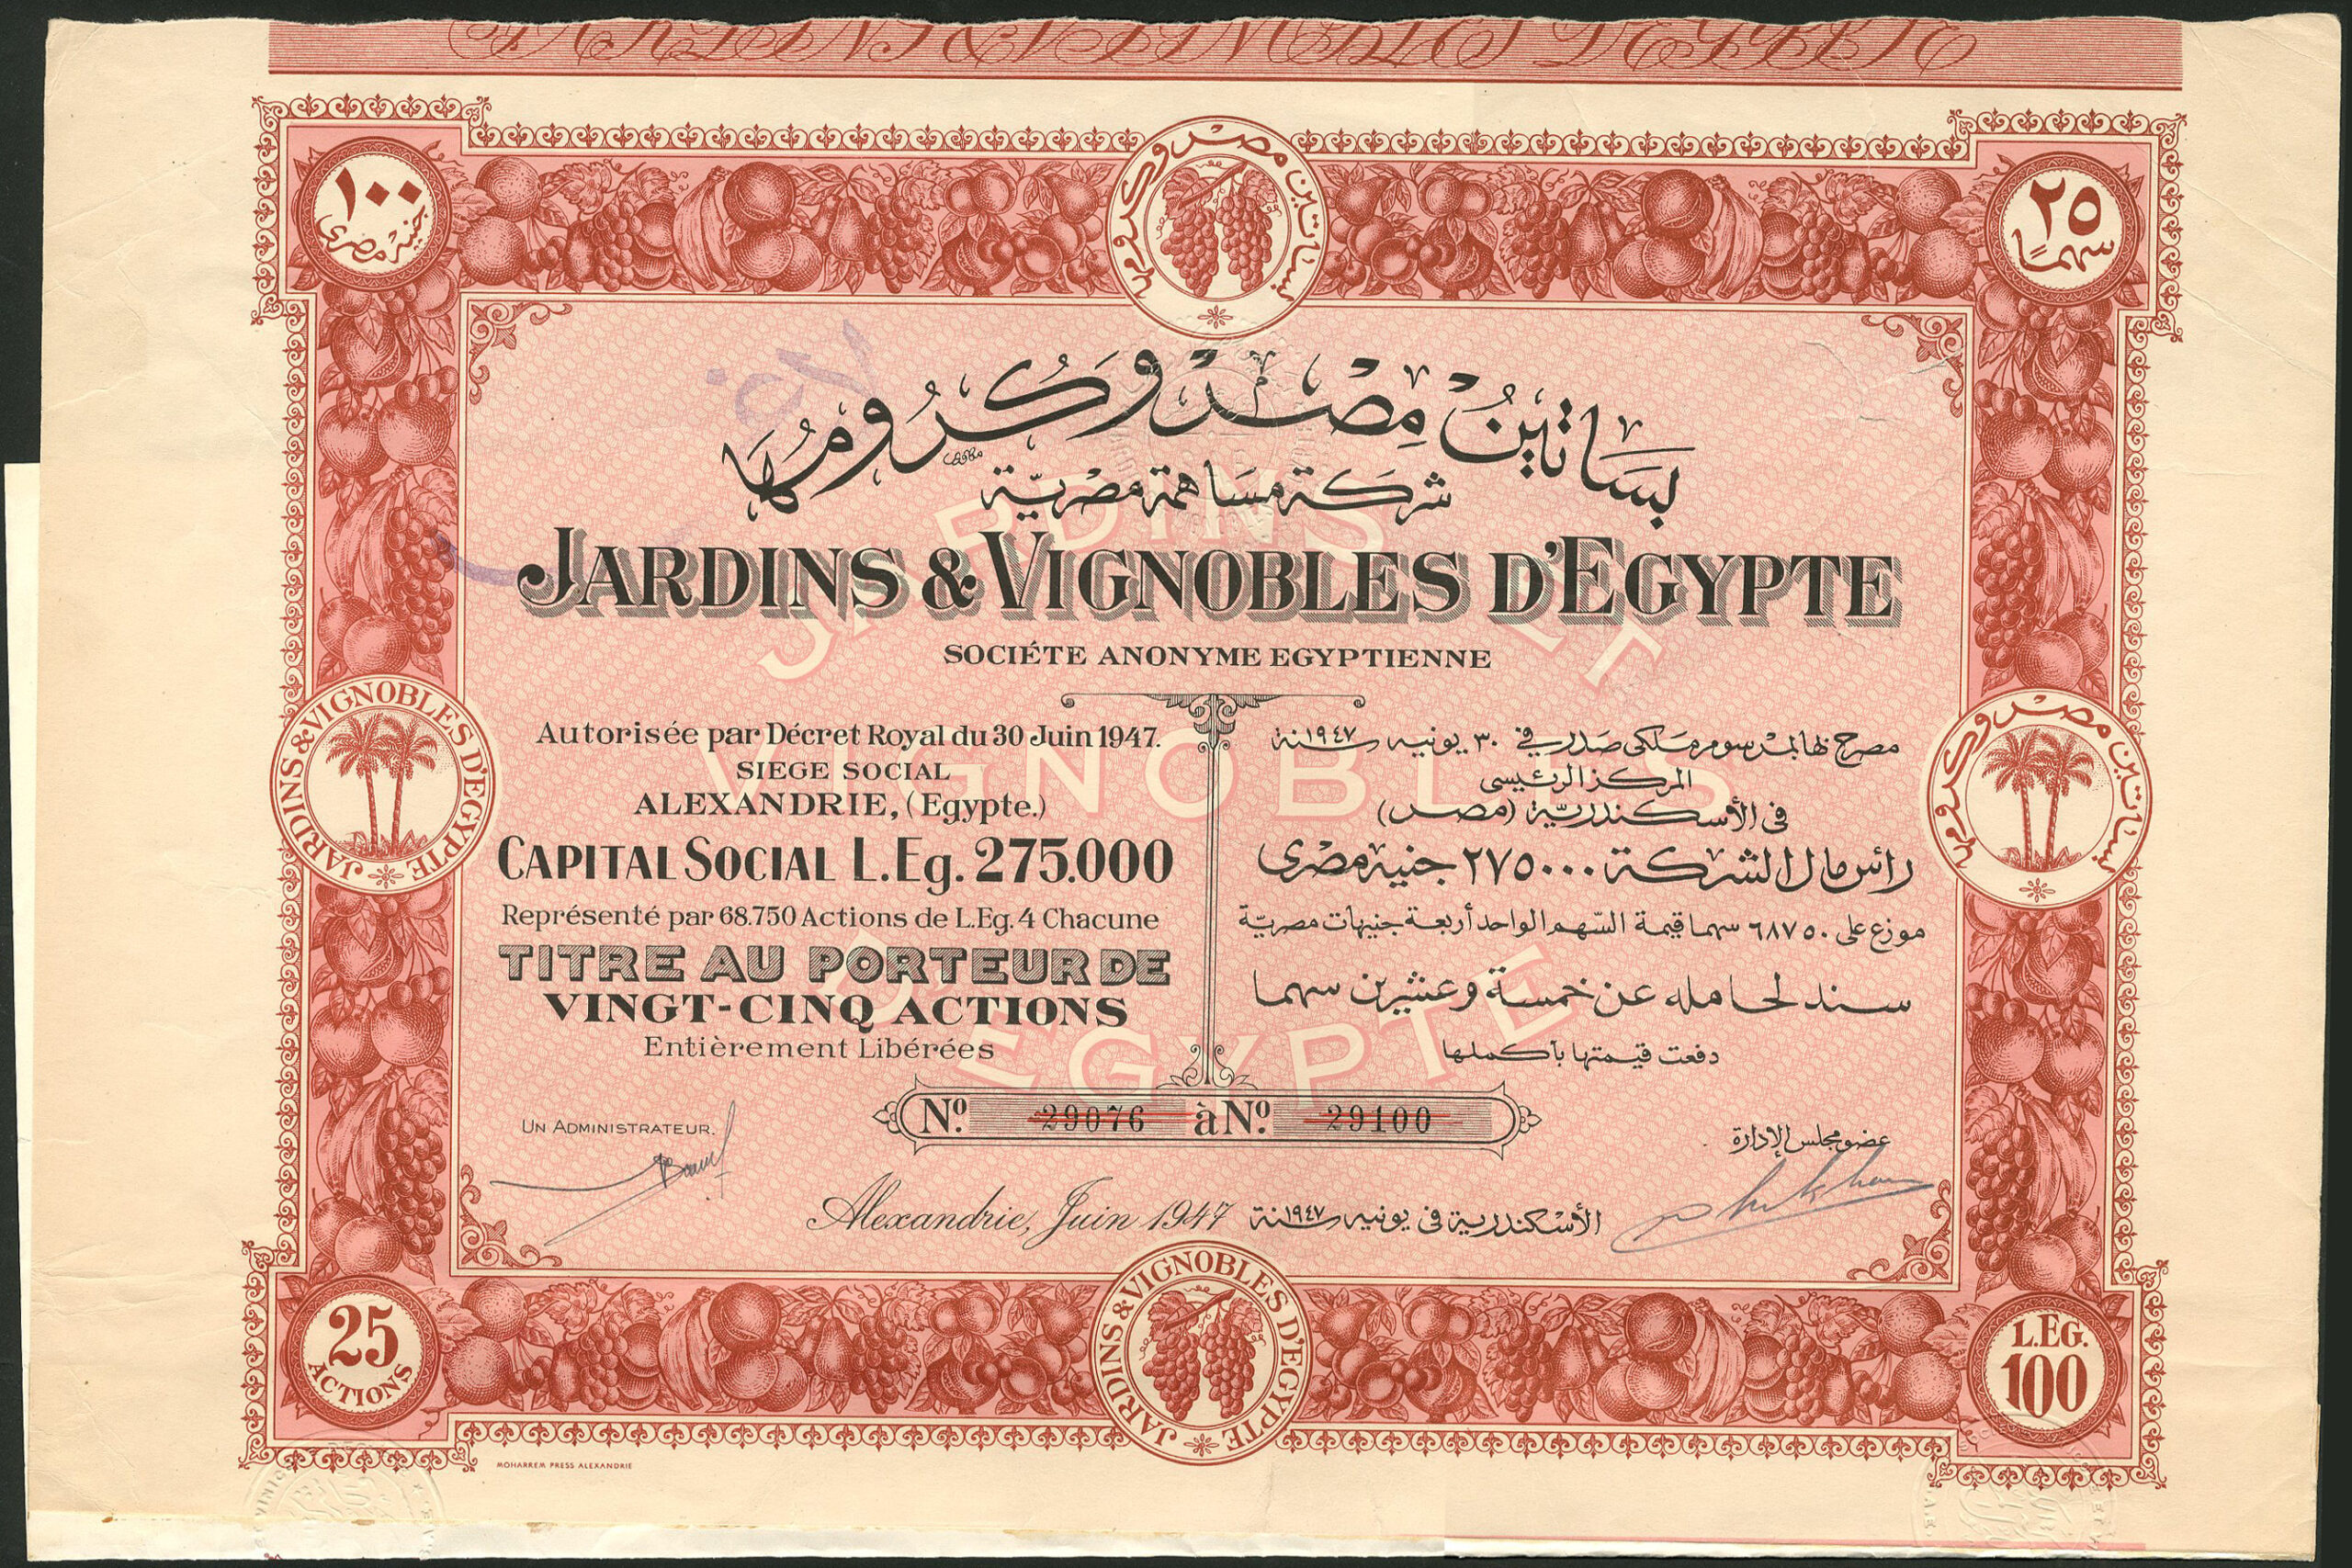 JARDINS & VIGNOBLES D'EGYPTE
١٠٠
جنيه مصرى
بساتين مصر وكرومها
٢٥
سهمًا
بساتين مصر وكرومها
شركة مساهمة مصرية
JARDINS & VIGNOBLES D'EGYPTE
SOCIÉTE ANONYME EGYPTIENNE
JARDINS ET
VIGNOBLES
D'EGYPTE
JARDINS & VIGNOBLES D'EGYPTE
Autorisée par Décret Royal du 30 Juin 1947.
SIEGE SOCIAL
ALEXANDRIE, (Egypte.)
CAPITAL SOCIAL L.Eg. 275.000
Représenté par 68.750 Actions de L.Eg. 4 Chacune
TITRE AU PORTEUR DE
VINGT-CINQ ACTIONS
Entièrement Libérées
مصرح لها بمرسوم ملكى صدر في ٣٠ يونيه سنة ١٩٤٧
المركز الرئيسى
فى الأسكندرية (مصر)
رأس مال الشركة ٢٧٥٠٠٠ جنيه مصرى
موزع على ٦٨٧٥٠ سهما قيمة السّهم الواحد أربعة جنيهات مصريّة
سند لحامله عن خمسة وعشرين سهما
دفعت قيمتها بأكملها
بساتين مصر وكرومها
Nº. 29076 à Nº. 29100
UN ADMINISTRATEUR.
عضو مجلس الإدارة
Alexandrie, Juin 1947
الأسكندرية فى يونيه سنة ١٩٤٧
25
ACTIONS
JARDINS & VIGNOBLES D'EGYPTE
L.EG.
100
MOHARREM PRESS ALEXANDRIE